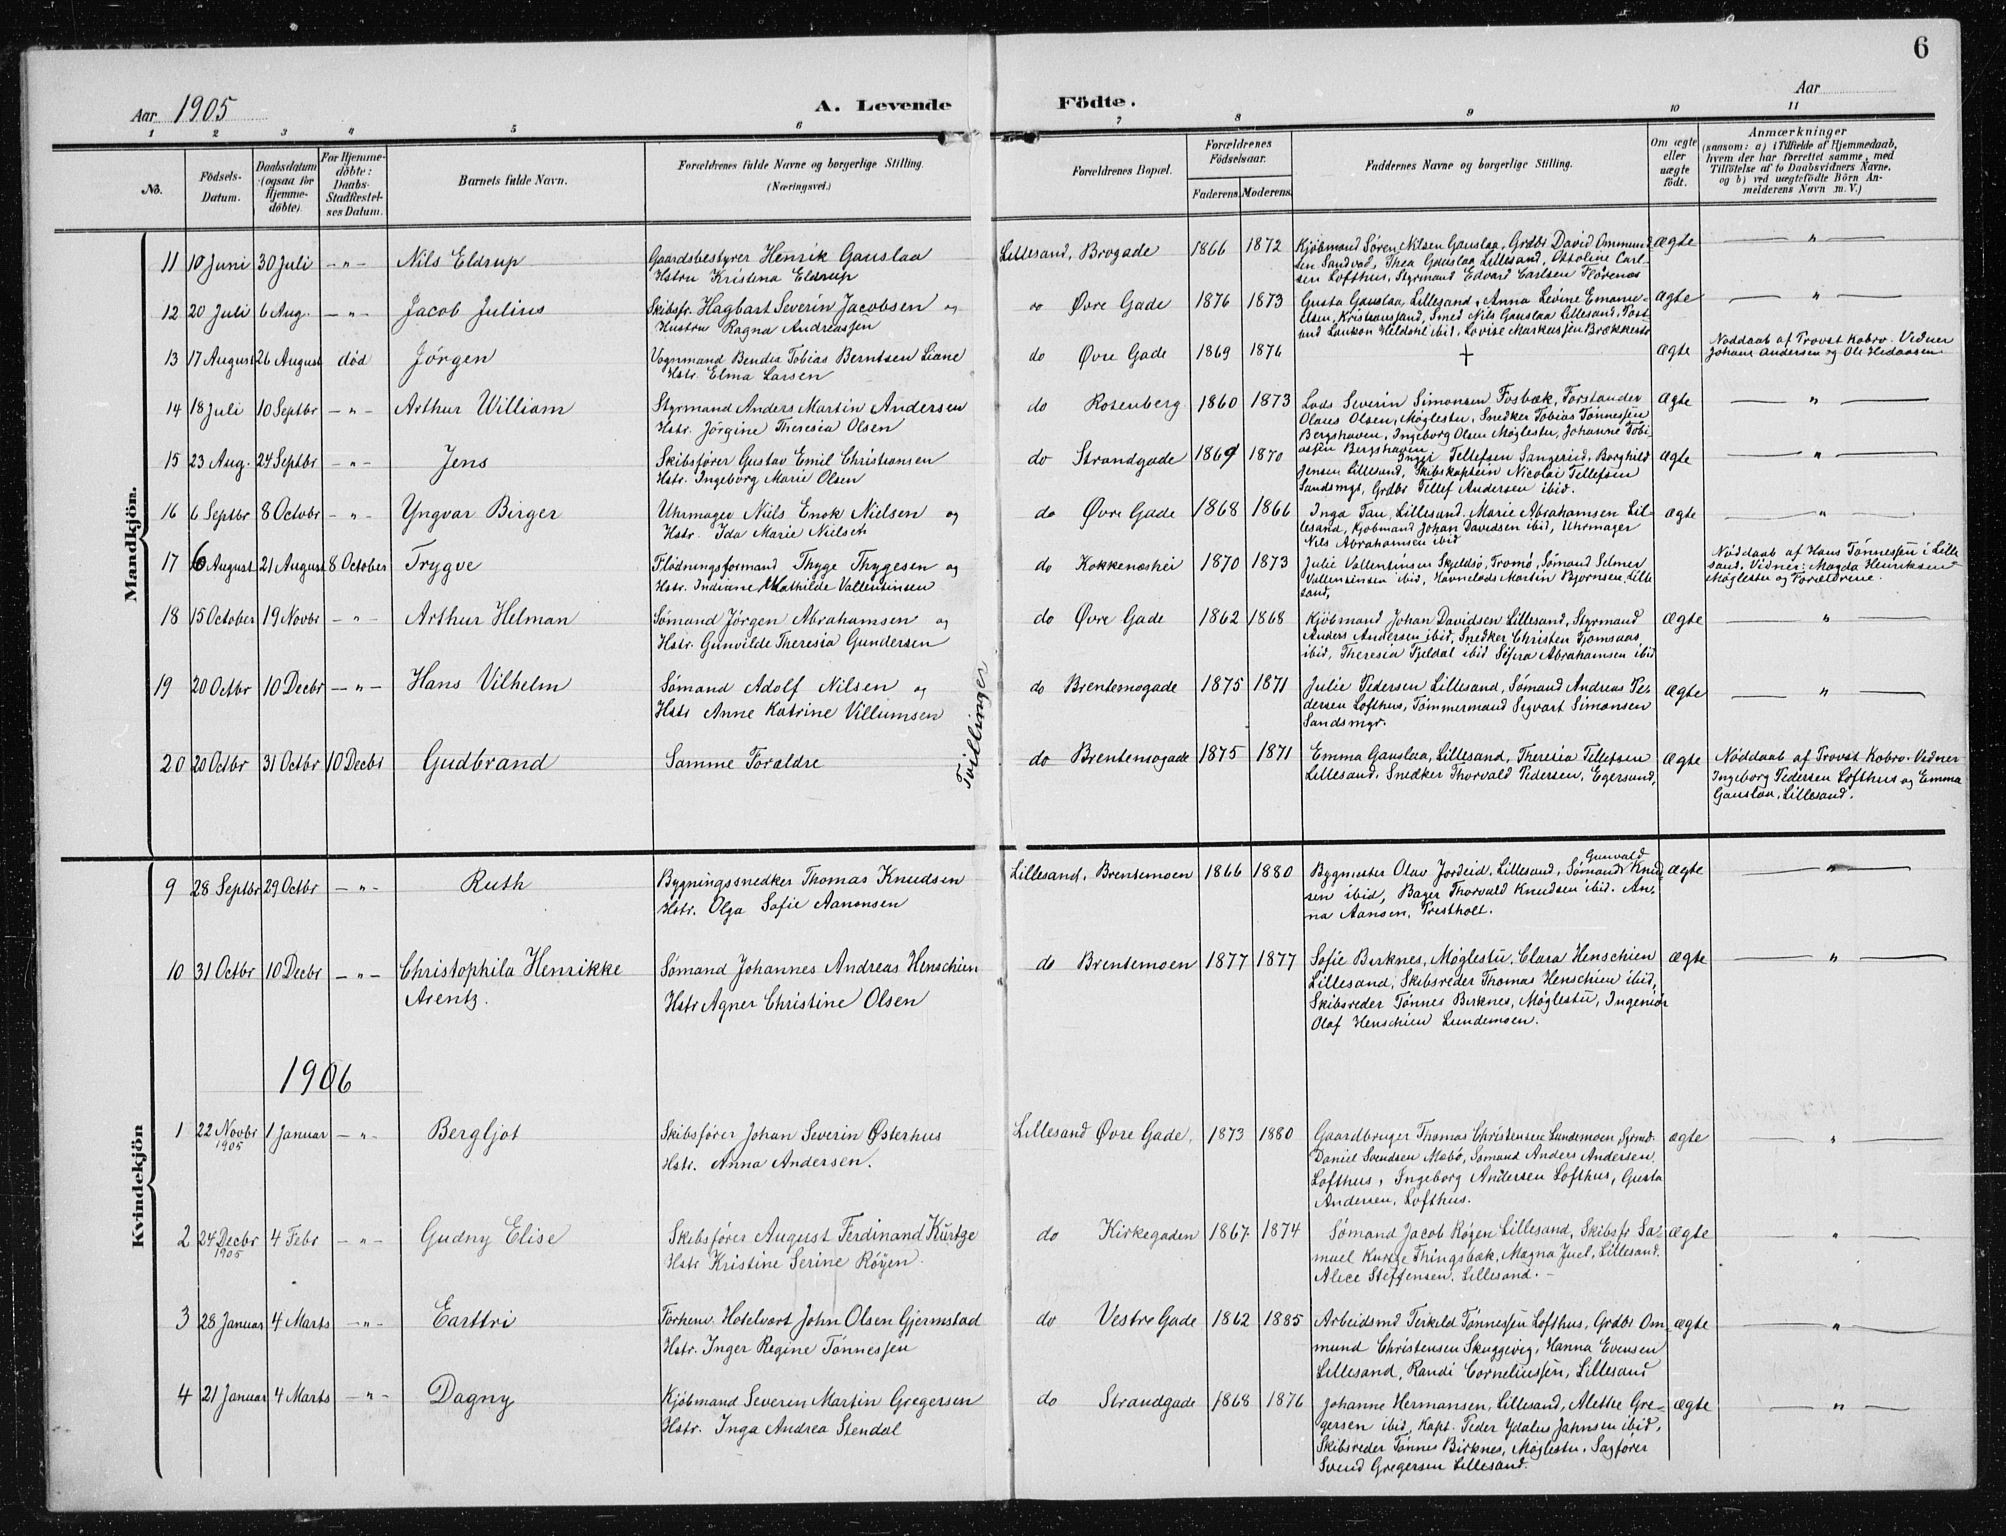 6
Aar 1905
A. Levende Födte.
Aar
1 2 3 4 5 6 7 8 9 10 11
No.
Födsels-
Datum.
Daabsdatum
(ogsaa for
Hjemme-
döbte).
For Hjemme-
döbte:
Daabs-
Stadfæstel-
ses Datum.
Barnets fulde Navn.
Forældrenes fulde Navne og borgerlige Stilling.
(Næringsvei.)
Forældrenes Bopæl.
Forældrenes
Födselsaar.
Faderens. Moderens.
Faddernes Navne og borgerlige Stilling.
Om ægte
eller
uægte
födt.
Anmærkninger
(saasom: a) i Tilfælde af Hjemmedaab,
hvem der har forrettet samme, med
Tilföielse af to Daabsvidners Navne,
og b) ved uægtefödte Börn An-
melderens Navn m. V.)
Mandkjön.
11 10 Juni 30 Juli -"- Nils Eldrup
Gaardsbestyrer Henrik Gauslaa
Hstru Kristena Eldrup
Lillesand, Brogade 1866 1872
Kjøbmand Søren Nilsen Gauslaa, Grdbr David Ommund-
sen Sandvad, Thea Gauslaa Lillesand, Ottoline Carl-
sen Lofthus, Styrmand Edvard Carlsen Flødenæs
Ægte — " —
12 20 Juli 6 Aug. -"- Jacob Julius
Skibsfr. Hagbart Severin Jacobsen og
Hustru Ragna Andreassen
do Øvre Gade 1876 1873
Gusta Gauslaa, Lillesand, Anna Levine Emanu-
elsen, Kristianssand, Smed Nils Gauslaa Lillesand,
Hildahl ibid, Lovise Markussen Brækkestø
Ægte — " —
13 17 August 26 August død Jörgen
Vognmand Bendix Tobias Berntsen Liane
Hstr. Elma Larsen
do Øvre Gade 1869 1876 +
Ægte
Nøddaab af Provst Kobro. Vidner
Johans Andersen og Ole
14 18 Juli 10 Septbr -"- Arthur William
Styrmand Anders Martin Andersen
Hstr. Jörgine Theresia Olsen
do Rosenberg 1860 1873
Lods Severin Simonsen Fosbæk, Forstander
Olaus Olsen, Møglestu, Snedker Tobias Tønnessen
Bergshaven, Ingeborg Olsen Møglestu, Johanne Tobi-
assen Bergshaven
Ægte — " —
15 23 Aug. 24 Septbr -"- Jens
Skibsfører Gustav Emil Christiansen
Hstr. Ingeborg Marie Olsen
do Strandgade 1869 1870
Inger Tellefsen Sangereid, Borghild
Jensen Lillesand, Skibskaptein Nicolai Tellefsen
Sandsmgr, Grdbr Tellef Andersen ibid.
Ægte — " —
16 6 Septbr 8 Octobr -"- Yngvar Birger
Uhrmager Nils Enok Nielsen og
Hstr. Ida Marie Nielsen
do Øvre Gade 1868 1866
Inga Tau, Lillesand. Marie Abrahamsen Lil-
lesand, Kjøbmand Johan Davidsen ibid, Uhrmager
Nils Abrahamsen ibid
Ægte — " —
17 6 August 21 August 8 October Trygve
Flödningsformand Thyge Thygesen og
Hstr. Indiane Mathilde Vallentinsen
do Kokkenæshei 1870 1873
Julie Vallentinsen Skjeldsö, Tromø, Sømand Selmer
Vallentinsen ibid, Havnelods Martin Bjornsen, Lille-
sand,
Ægte
Nøddaab af Hans Tønnessen i Lille-
sand, Vidner: Magda Henriksen
Møglestu og Foreldrene.
18 15 October 19 Novbr -"- Arthur Helman
Sømand Jörgen Abrahamsen og
Hstr. Gunvilde Theresia Gundersen
do Øvre Gade 1862 1868
Kjøbmand Johan Davidsen Lillesand, Styrmand
Anders Andersen ibid, Snedker Christen Tjomsaas
ibid, Theresia Fjeldal ibid Sofia Abrahamsen ibid
Ægte — " —
19 20 Octbr 10 Decbr -"- Hans Vilhelm
Sømand Adolf Nilsen og
Hstr Anne Katrine Villumsen
Tvillinger
do Brentemogade 1875 1871
Julie Pedersen Lillesand, Sømand Andreas Pe-
dersen Lofthus, Tømmermand Sigvart Simonsen
Sandsmgr.
Ægte — " —
20 20 Octbr 31 Octbr 10 Decbr Gudbrand
Samme Foraldre
do Brentemogade 1875 1871
Emma Gauslaa, Lillesand, Theresia Tellefsen
Lillesand, Snedker Thorvald Pedersen, Egersund,
Ægte
Nøddaab af Provst Kobro. Vidner
Ingeborg Pedersen Lofthus og Emma
Gauslaa, Lillesand.
Kvindekjön
9 28 Septbr 29 Octbr -"- Ruth
Bygningssnedker Thomas Knudsen
Hstr. Olga Sofie Aanonsen
Lillesand, Brentemoen 1866 1880
Gunvald
Bygmester Olav Jordeid, Lillesand, Sømand Knud-
sen ibid, Bager Thorvald Knudsen ibid. An-
na Aansen, Prestholt.
Ægte — " —
10 31 Octbr 10 Decbr -"- Christophila Henrikke
Arentz.
Sømand Johannes Andreas Henschien
Hstr Agner Christine Olsen
do Brentemoen 1877 1877
Sofie Birknes, Møglestu, Clara Henschien
Lillesand, Skibsreder Thomas Henschien ibid,
Skibsreder Tønnes Birknes, Møglestu, Ingeniør
Olaf Henschien Lundemoen.
Ægte — " —
1906
1 22 Novbr 1905 1 Januar -"- Bergljot
Skibsfører Johan Severin Østerhus
Hstr. Anna Andersen.
Lillesand Øvre Gade, 1873 1880
Gaardbruger Thomas Christensen Lundemoen,
Daniel Svendsen Møbø, Sømand Anders Andersen
Lofthus, Ingeborg Andersen Lofthus, Gusta
Andersen, Lofthus.
ægte "
2 24 Decbr 1905 4 Febr -"- Gudny Elise
Skibsfører August Ferdinand Kurtze
Hstr Kristine Serine Röyen.
do Kirkegaden 1867. 1874
Sømand Jacob Røyen Lillesand, Skibsfr Sa-
muel Kurtze Thingsbæk, Magna Juel, Lillesand.
Alice Steffensen, Lillesand. -
Ægte — " —
3 28 Januar 4 Marts -"- Earttri
Forhenv. Hotelvært John Olsen Gjermstad
Hstr. Inger Regine Tönnessen
do Vestre Gade 1862 1885
Arbeidsmd Terkeld Tønnessen Lofthus, Grdbr Om-
mund Christensen Skuggevig, Hanna Evensen
Lillesand, Randi Corneliussen, Lillesand
ægte — " —
4 21 Januar 4 Marts -"- Dagny
Kjöbmand Severin Martin Gregersen
Hstr. Inga Andrea Stendal
do Strandgade 1868 1876
Johanne Hermansen, Lillesand, Alette Gre-
gersen ibid, Kapt. Peder Ydalus Jahnsen ibid,
Skibsreder Tønnes Birknes, Møglestu, Sagfører
Svend Gregersen Lillesand.
ægte — " —